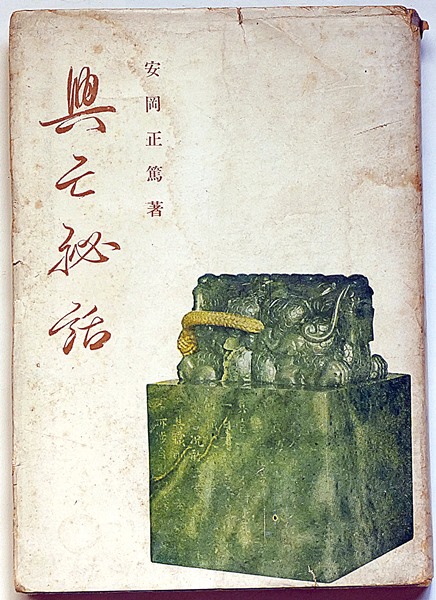 安岡正篤著
興亡秘話